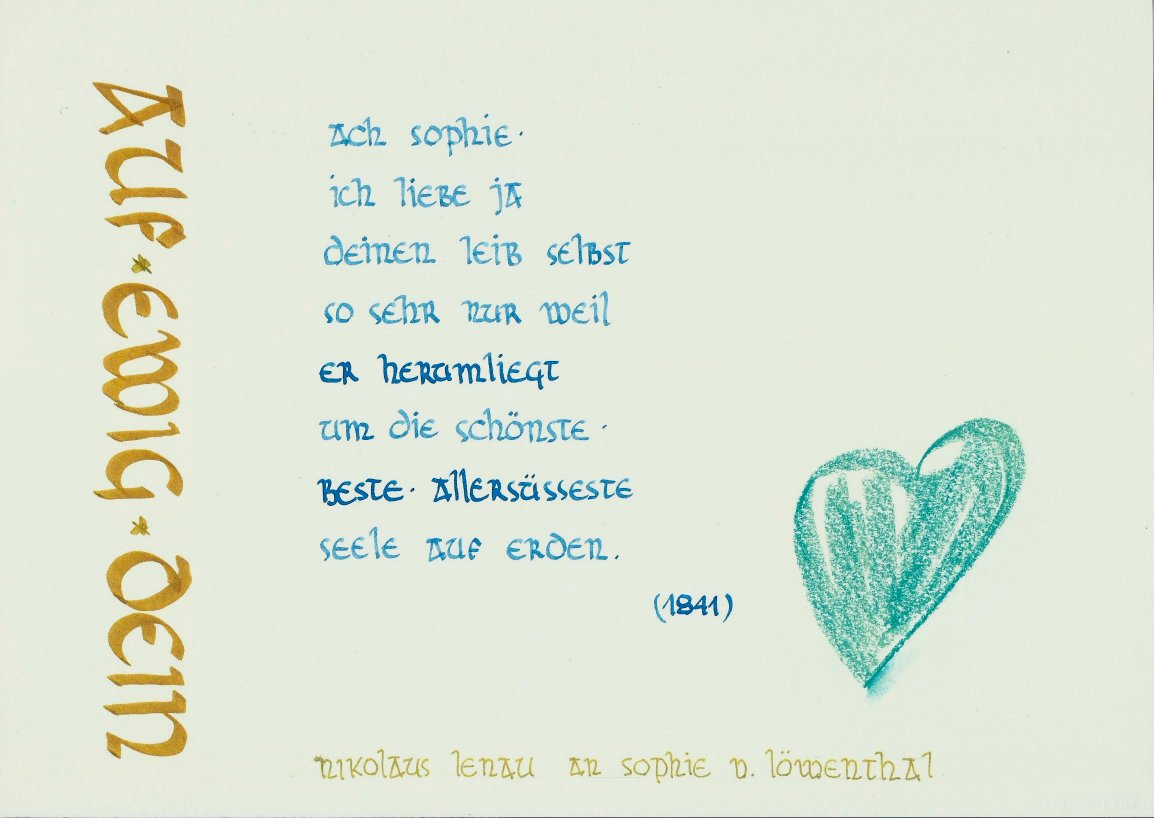 auf * ewig * dein
ach sophie·
ich liebe ja
deinen leib selbst
so sehr nur weil
er herumliegt
um die schönste ·
beste· allersüsseste
seele auf erden.
(1841)
nikolaus lenau an sophie v. löwenthal